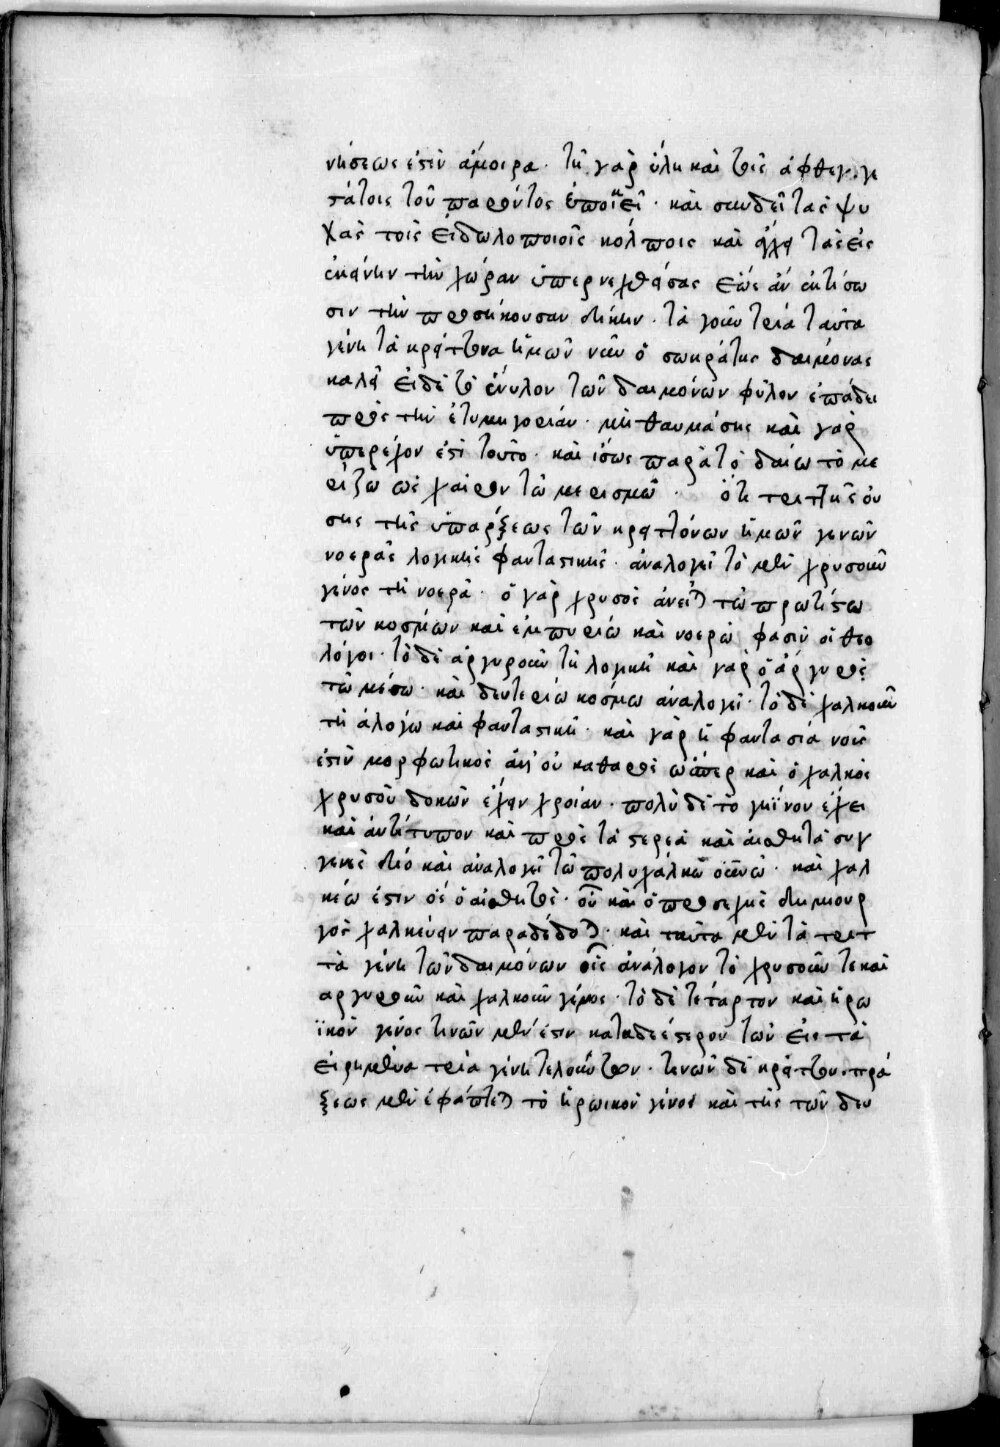 νήσεως ἐστὶν ἄμοιρα· τῆ γὰρ ὕλη καὶ τοῖς ἀφθεγγε
στάτοις τοῦ παντὸς ἐποικεῖ· καὶ συνδεῖ τὰς ψυ
χὰς τοῖς εἰδωλοποιοῖς κόλποις καὶ ἄγχει τὰς εἰς
ἐκείνην τὴν χώραν ὑπερνεχθείσας ἕως ἂν ἐκτίσω
σιν τὴν προσήκουσαν δίκην· τὰ γοῦν τρία ταῦτα
γένη τὰ κρείττονα ἡμῶν νῦν ὁ σωκράτης δαίμονας
καλεῖ εἰ δὲ τὸ ἔνυλον τῶν δαιμόνων φῦλον ἐπάδει
πρὸς τὴν ἐτυμηγορίαν· μὴ θαυμάσης καὶ γὰρ
ὑπερέχον ἐστὶ τοῦτο· καὶ ἴσως παρὰ τὸ δαίω τὸ με
ρίζω ὡς χαῖρον τῶ μερισμῶ· ὅτι τριττῆς οὔ
σης τῆς ὑπάρξεως τῶν κρειττόνων ἡμῶν γενῶν
νοερᾶς λογικῆς φανταστικῆς· ἀναλογεῖ τὸ μὲν χρυσοῦν
γένος τῆ νοερᾶ· ὁ γὰρ χρυσὸς ἀνεῖται τῶ πρωτίστω
τῶν κοσμων καὶ ἐμπυρίω καὶ νοερῶ φασιν οἱ θεο
λόγοι· τὸ δὲ ἀργυροῦν τῆ λογικῆ καὶ γὰρ ὁ ἄργυρος
τῶ μέσω· καὶ δευτερίω κόσμω ἀναλογεῖ· τὸ δὲ χαλκοῦν
τῆ ἀλόγω καὶ φανταστικῆ· καὶ γὰρ ἡ φαντασία νοῦς
ἐστὶν μορφωτικὸς ἀλλ' οὐ καθαρὸς ὥσπερ καὶ ὁ χαλκὸς
χρυσοῦ δοκῶν ἔχειν χροιάν· πολὺ δὲ τὸ γήϊνον ἔχει
καὶ ἀντίτυπον καὶ πρὸς τὰ στερεὰ καὶ αἰσθητὰ συγ
γενὲς διὸ καὶ ἀναλογεῖ τῶ πολυχάλκω οὐρανῶ· καὶ χαλ
κέω ἐστιν ὃς ὁ αἰσθητὸς· οὗ καὶ ὁ προσεχὴς δημιουρ
γὸς χαλκεύειν παραδέδοται· καὶ ταῦτα μὲν τὰ τριτ
τὰ γένη τῶν δαιμόνων οἷς ἀνάλογον τὸ χρυσοῦν τε καὶ
ἀργυροῦν καὶ χαλκοῦν γένος· τὸ δὲ τέταρτον καὶ ἡρω
ϊκὸν γένος τινῶν μέν ἐστιν καταδεέστερον τῶν εἰς τὰ
εἰρημένα τρία γένη τελούντων· τινῶν δὲ κρεῖττον· πρά
ξεως μὲν ἐφάπτεται τὸ ἡρωικὸν γένος καὶ τῆς τῶν δευ